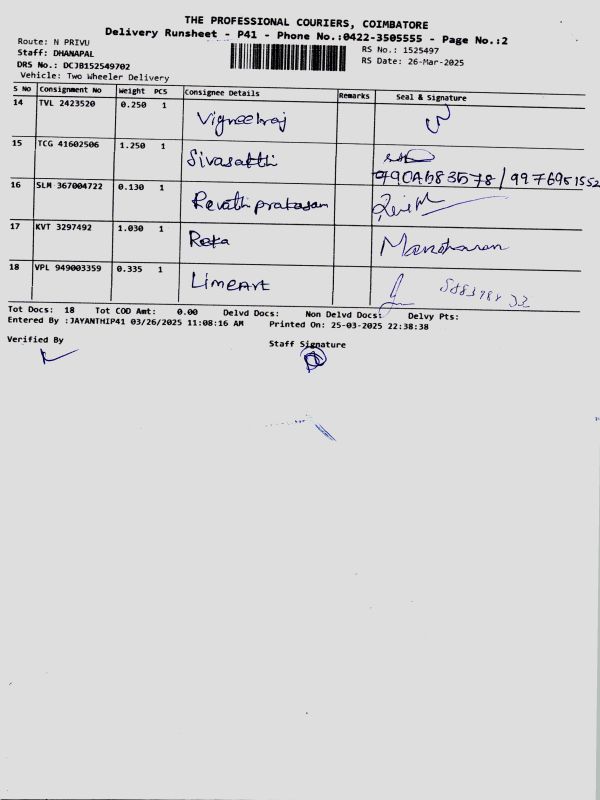 THE PROFESSIONAL COURIERS, COIMBATORE
Delivery Runsheet - P41 - Phone No.:0422-3505555 - Page No.:2
Route: N PRIVU
RS No.: 1525497
Staff: DHANAPAL
RS Date: 26-Mar-2025
DRS No.: DCJB152549702
Vehicle: Two Wheeler Delivery
S No Consignment No Weight PCS Consignee Details Remarks Seal & Signature
14 TVL 2423520 0.250 1 Vigneshraj
15 TCG 41602506 1.250 1 Sivasakthi
16 SLM 367004722 0.130 1 Revathi prakasam
17 KVT 3297492 1.030 1 Reka Manoharan
18 VPL 949003359 0.335 1 LimeArt
Tot Docs: 18 Tot COD Amt: 0.00 Delvd Docs: Non Delvd Docs: Delvy Pts:
Entered By :JAYANTHIP41 03/26/2025 11:08:16 AM Printed On: 25-03-2025 22:38:38
Verified By
Staff Signature